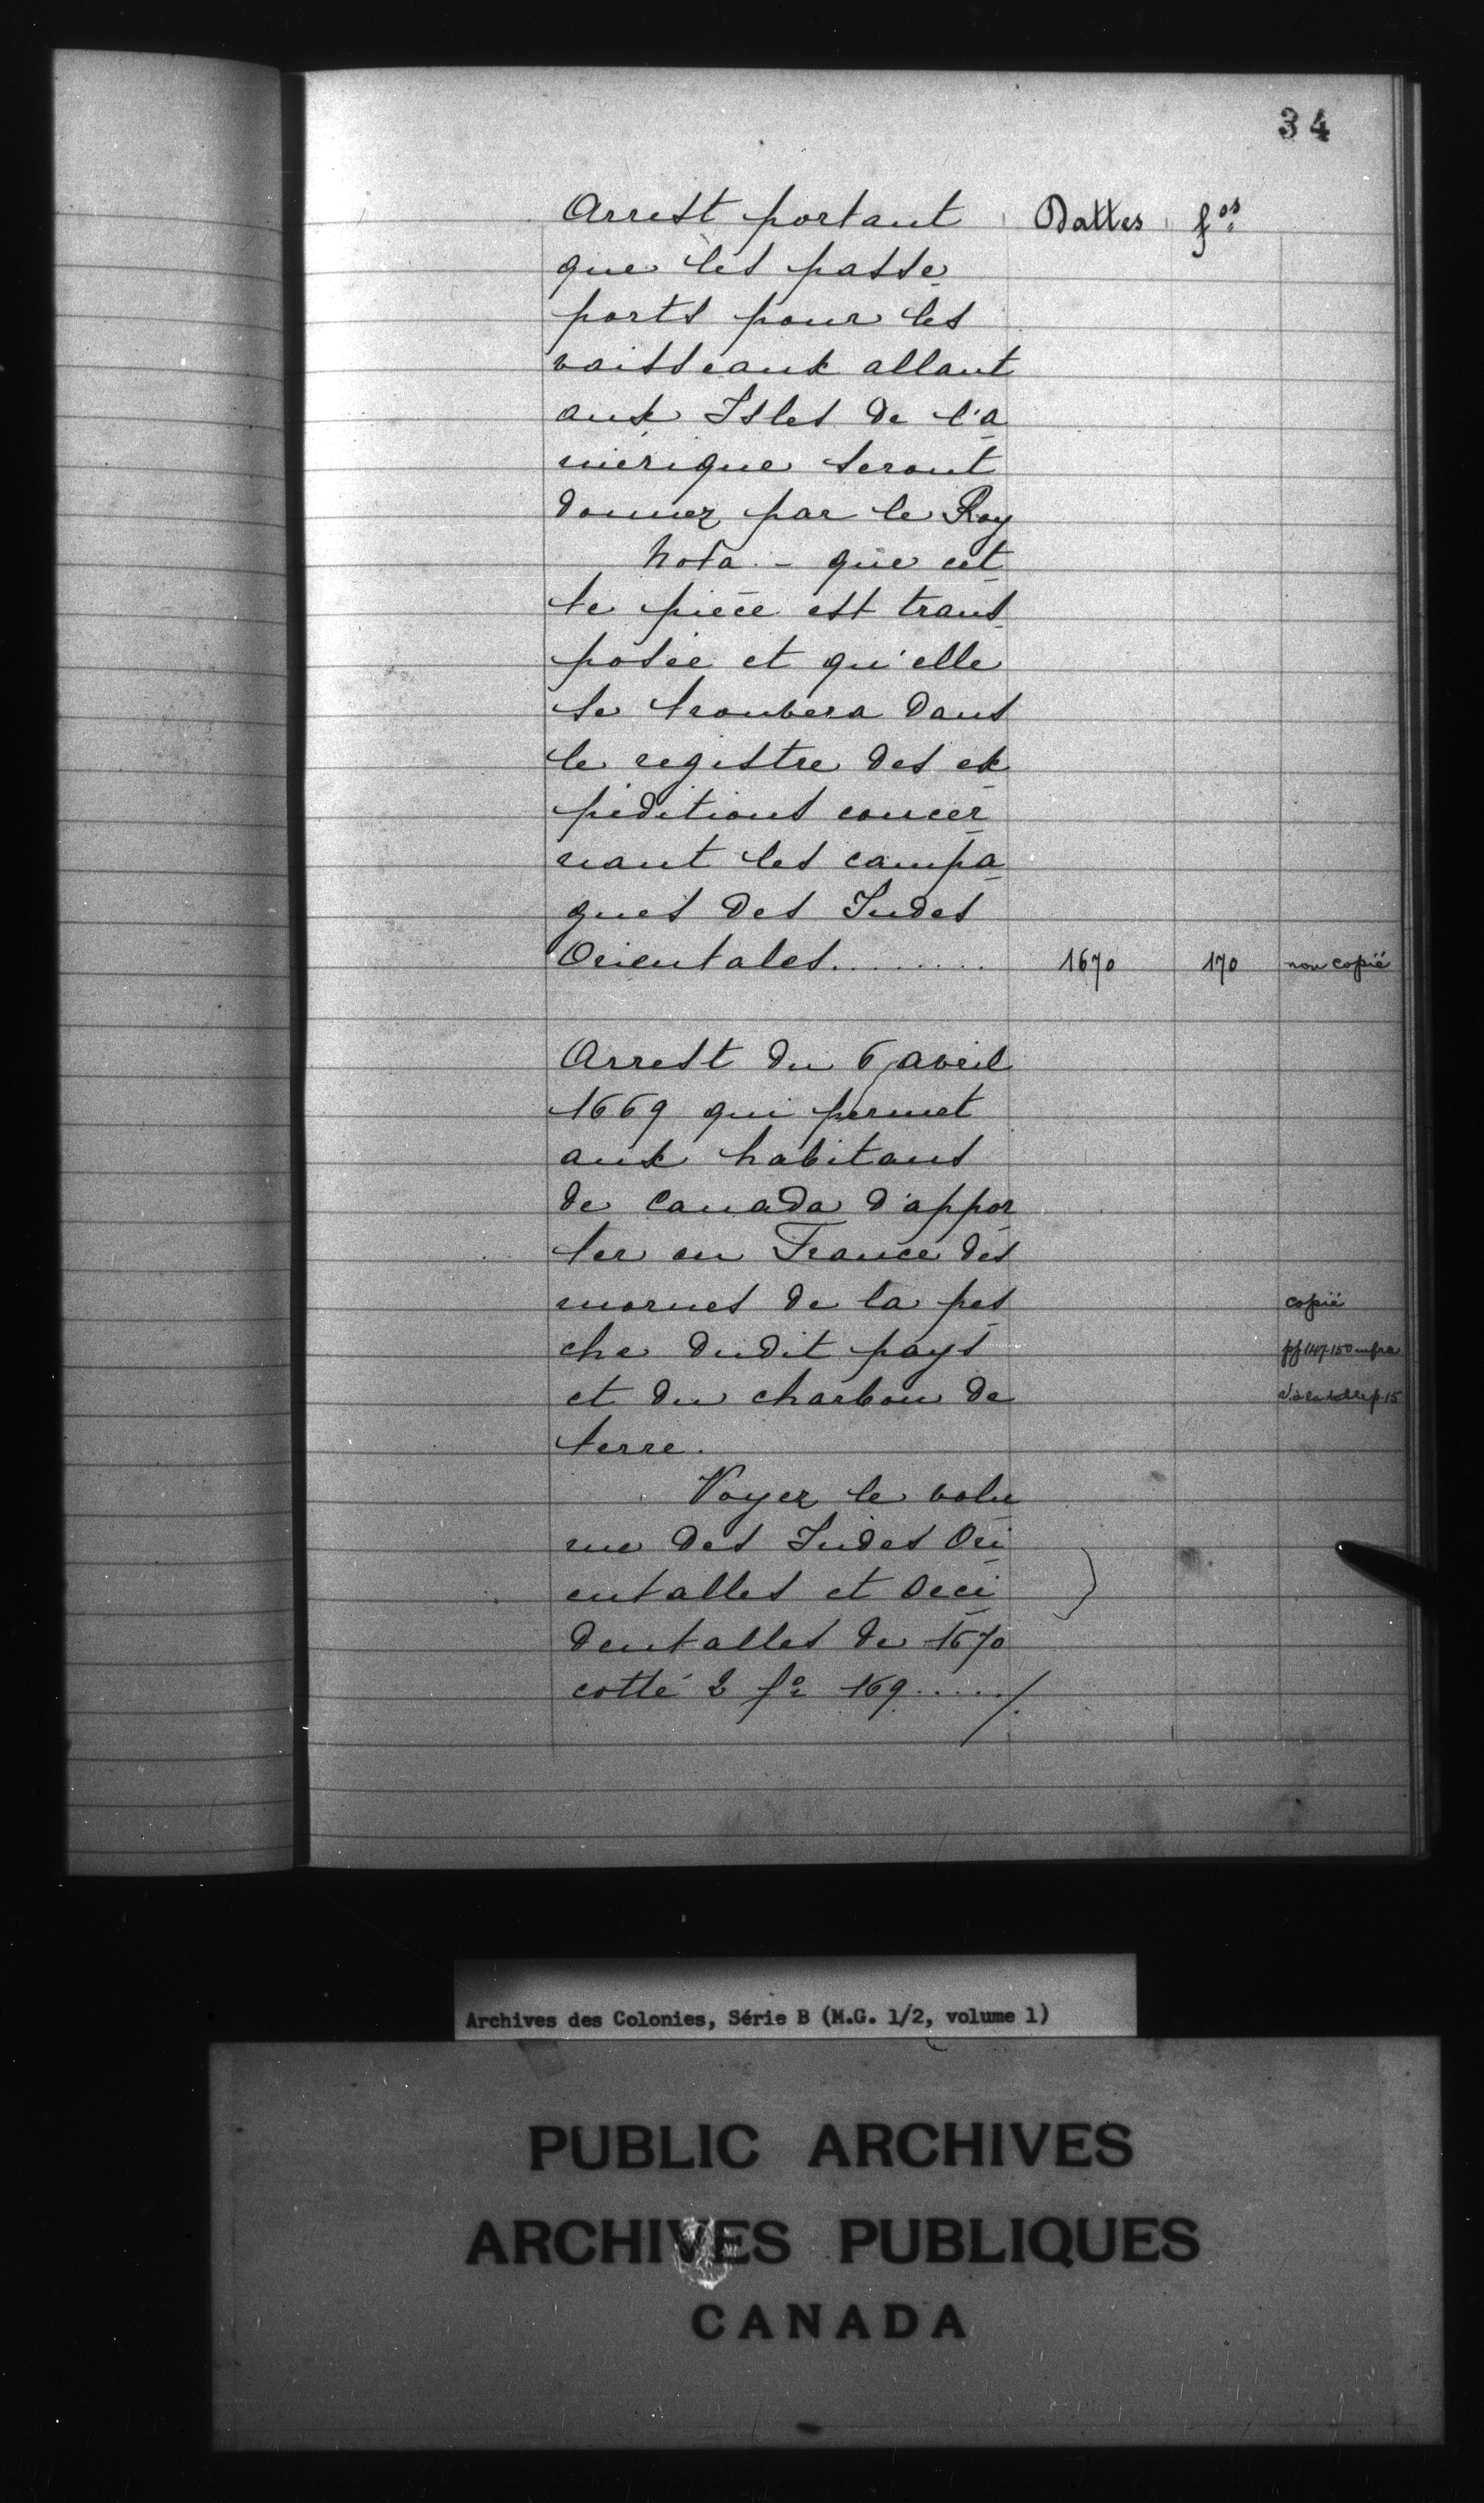 34
Arrest portant Dattes fos
que les passe
ports pour les
vaisseaux allant
aux Isles de l'a
mérique seront
donnez par le Roy
Nota - que cet
te pièce est trans
posée et qu'elle
se trouvera dans
le registre des ex
péditions concer
nant les campa
gnes des Indes
Orientales......... 1670 170 non copié
Arrest du 6 avril
1669 qui permet
aux habitans
de Canada d'appor
ter en France des
morues de la pes
che dudit pays
et du charbon de
terre.
copié
pp 147-150 infra
p. 15
Voyez le volu
me des Indes Ori
entalles et occi
dentalles de 1670
cotté 2 fo 169...../.
Archives des Colonies, Série B (M.G. 1/2, volume 1)
PUBLIC ARCHIVES
ARCHIVES PUBLIQUES
CANADA